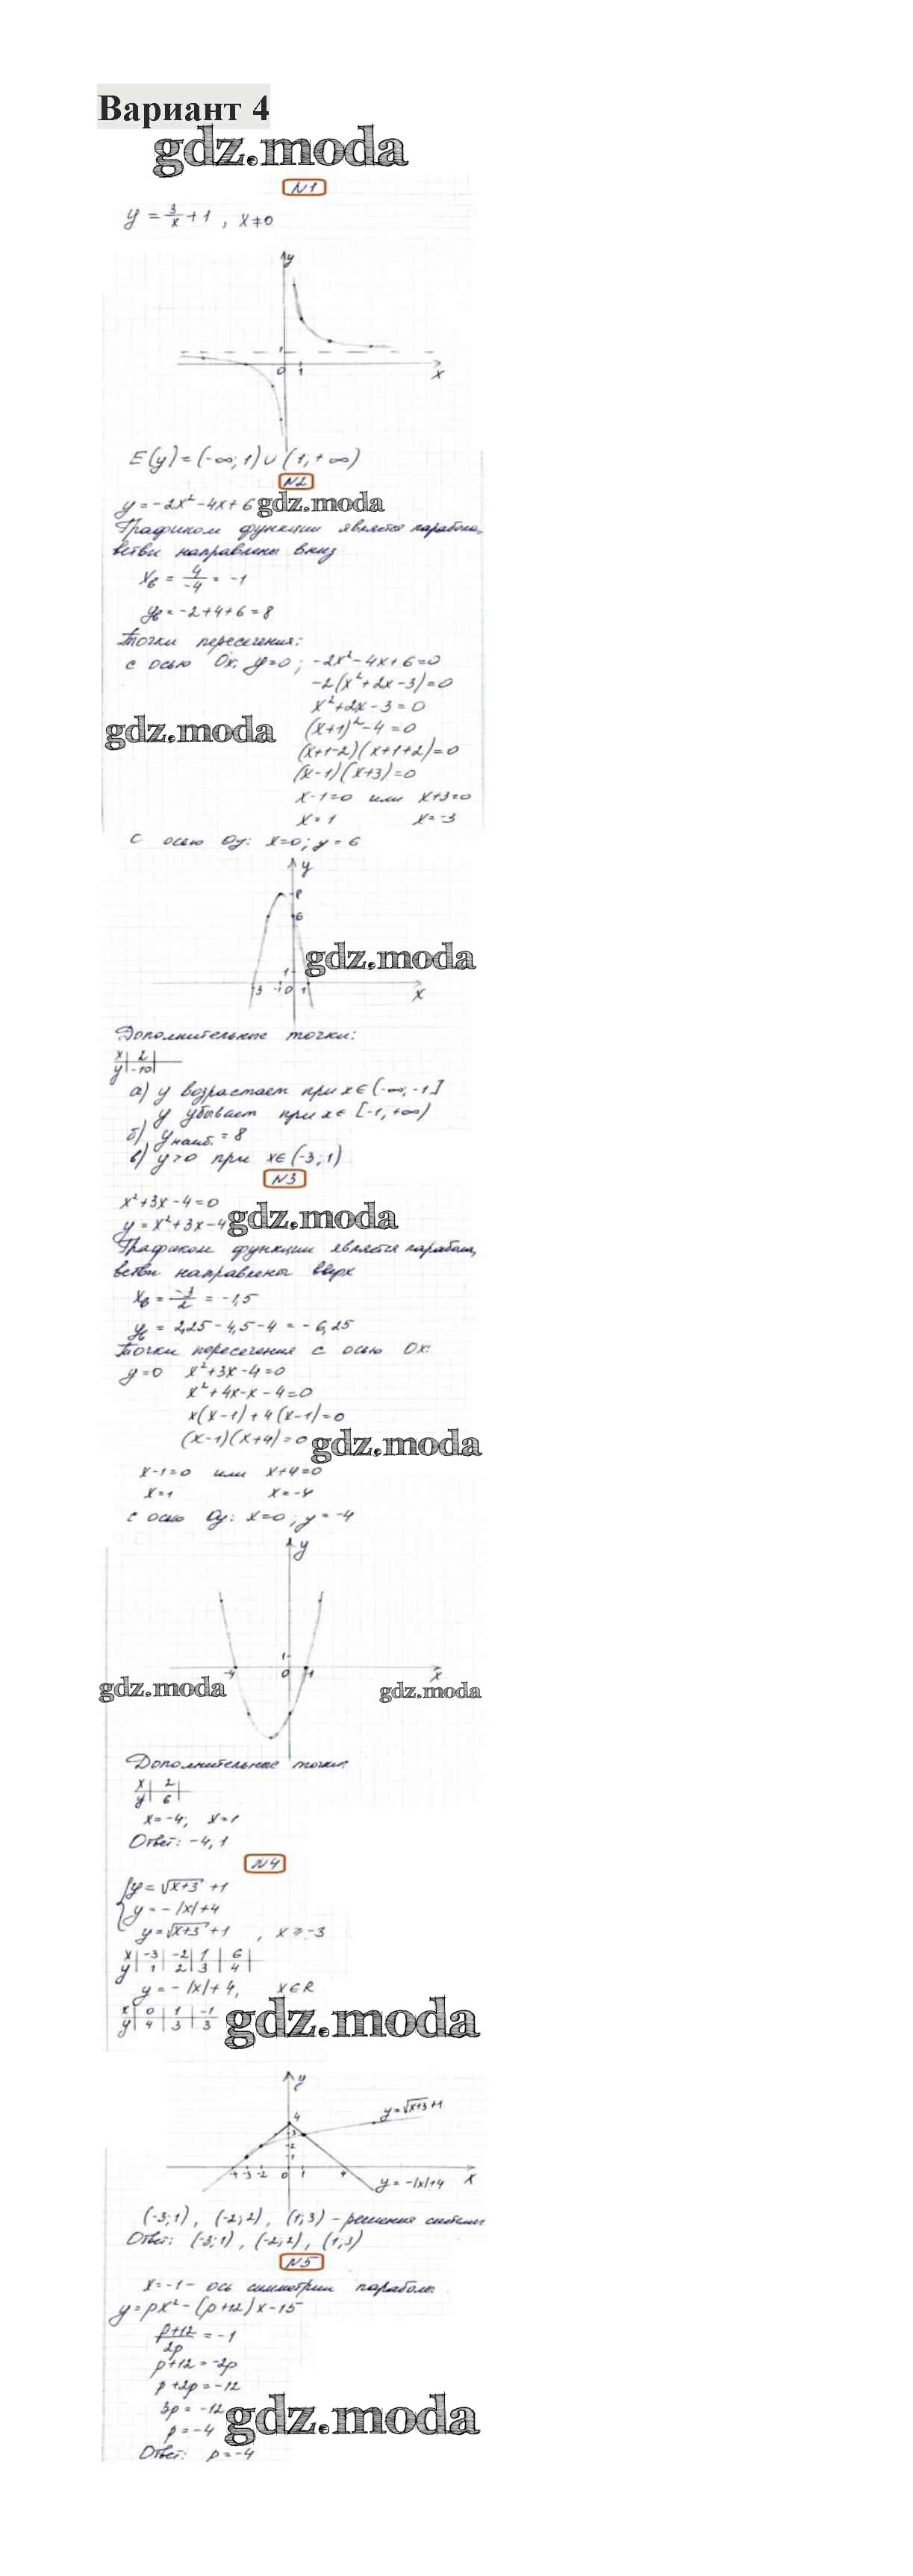 Вариант 4
gdz.moda
N1
y = 3/x + 1 , x≠0
y
1
0 1
x
E(y) = (-∞; 1) ∪ (1; +∞)
N2
y = -2x² - 4x + 6 gdz.moda
Графиком функции является парабола,
ветви направлены вниз
xв = 4/-4 = -1
yв = -2+4+6 = 8
Точки пересечения:
с осью Ox: y=0 ; -2x² - 4x + 6 = 0
-2(x² + 2x - 3) = 0
x² + 2x - 3 = 0
gdz.moda (x+1)² - 4 = 0
(x+1-2)(x+1+2) = 0
(x-1)(x+3) = 0
x-1=0 или x+3=0
x=1 x=-3
с осью Oy: x=0; y=6
y
8
6
gdz.moda
1
-3 -1 0 1
x
Дополнительные точки:
x | 2 |
y | -10 |
а) y возрастает при x ∈ (-∞, -1]
y убывает при x ∈ [-1, +∞)
б) yнаиб. = 8
в) y>0 при x ∈ (-3; 1)
N3
x² + 3x - 4 = 0
y = x² + 3x - 4 gdz.moda
Графиком функции является парабола,
ветви направлены вверх
xв = -3/2 = -1,5
yв = 2,25 - 4,5 - 4 = -6,25
Точки пересечения с осью Ox:
y=0 x² + 3x - 4 = 0
x² + 4x - x - 4 = 0
x(x-1) + 4(x-1) = 0
(x-1)(x+4) = 0 gdz.moda
x-1=0 или x+4=0
x=1 x=-4
с осью Oy: x=0; y=-4
y
1
-4 0 1
x
gdz.moda gdz.moda
Дополнительные точки:
x | 2 |
y | 6 |
x=-4; x=1
Ответ: -4, 1
N4
{ y = √x+3 + 1
y = -|x| + 4
y = √x+3 + 1 , x ≥ -3
x | -3 | -2 | 1 | 6 |
y | 1 | 2 | 3 | 4 |
y = -|x| + 4, x ∈ R
x | 0 | 1 | -1
y | 4 | 3 | 3 gdz.moda
y
4
y = √x+3 + 1
3
2
1
-4 -3 -2 0 1 4
x
y = -|x| + 4
(-3; 1), (-2; 2), (1; 3) - решения системы
Ответ: (-3; 1), (-2; 2), (1; 3)
N5
x = -1 - ось симметрии параболы
y = px² - (p+12)x - 15
p+12/2p = -1
p+12 = -2p
p+2p = -12
3p = -12
p = -4 gdz.moda
Ответ: p = -4